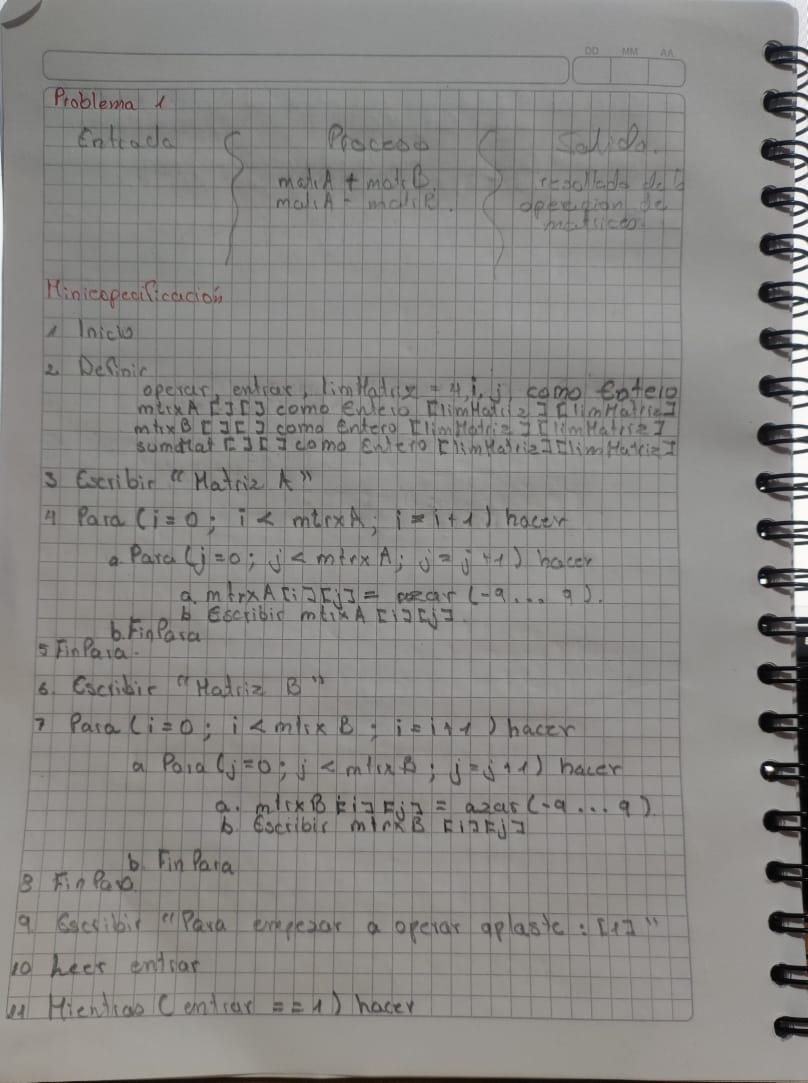 DD MM AA
Problema 1
Entrada Proceso Salida.
matrA + matrB. resultado de la
matrA - matrB. operacion de
matrices
Miniespecificación
1 Inicio
2 Definir
operar, entrar, limMatriz = 4, i, j como Entero
mtrxA [ ] [ ] como Entero [limMatriz] [limMatriz]
mtrxB [ ] [ ] como Entero [limMatriz] [limMatriz]
sumMat [ ] [ ] como Entero [limMatriz] [limMatriz]
3 Escribir "Matriz A"
4 Para (i=0; i < mtrxA; i = i+1) hacer
a. Para (j=0; j < mtrxA; j = j+1) hacer
a. mtrxA [i] [j] = azar (-9...9).
b Escribir mtrxA [i] [j].
b. FinPara
5 FinPara.
6. Escribir "Matriz B"
7 Para (i=0; i < mtrx B; i = i+1) hacer
a Para (j=0; j < mtrxB; j=j+1) hacer
a. mtrxB [i] [j] = azar (-9...9)
b. Escribir mtrxB [i] [j]
b. FinPara
8 FinPara
9 Escribir "Para empezar a operar aplaste: [1]"
10 Leer entrar
11 Mientras (entrar == 1) hacer